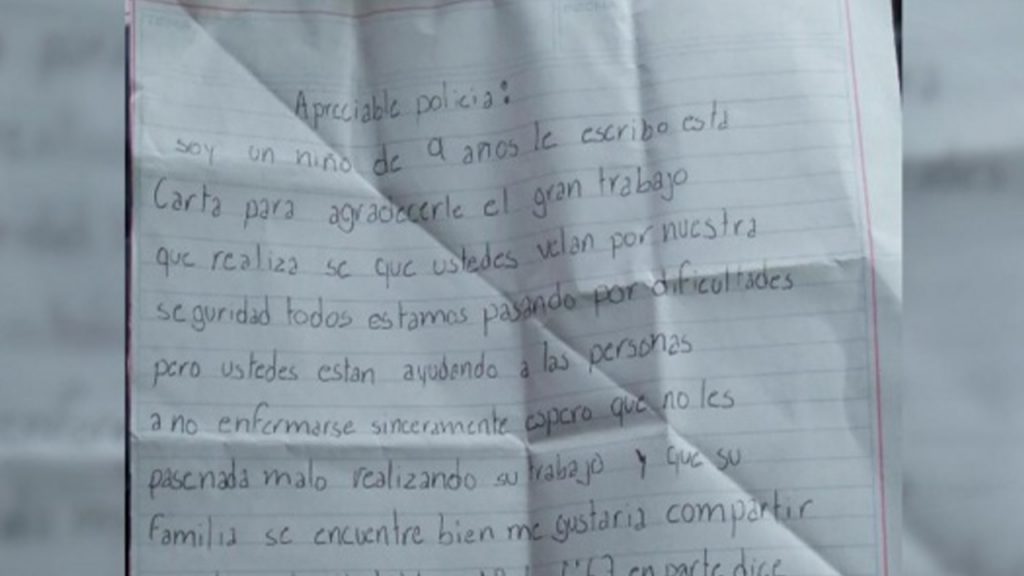 Apreciable policia:
soy un niño de 9 años le escribo esta
Carta para agradecerle el gran trabajo
que realiza se que ustedes velan por nuestra
seguridad todos estamos pasando por dificultades
pero ustedes estan ayudando a las personas
a no enfermarse sinceramente espero que no les
pasenada malo realizando su trabajo y que su
familia se encuentre bien me gustaria compartir
en parte dice